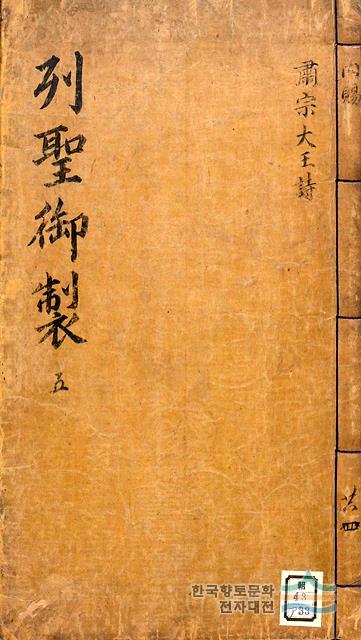 內賜
共四
肅宗大王詩
列聖御製 五
朝
43
733
한국향토문화
전자대전